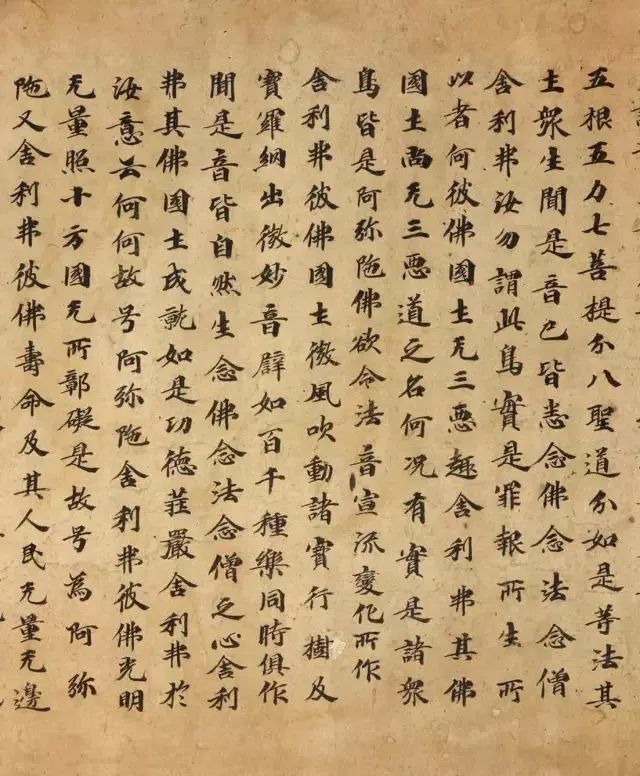 五根五力七菩提分八聖道分如是等法其
土衆生聞是音已皆悉念佛念法念僧
舍利弗汝勿謂此鳥實是罪報所生所
以者何彼佛國土无三惡趣舍利弗其佛
國土尚无三惡道之名何况有實是諸衆
鳥皆是阿弥陁佛欲令法音宣流變化所作
舍利弗彼佛國土微風吹動諸寶行樹及
寶羅網出微妙音譬如百千種樂同時俱作
聞是音皆自然生念佛念法念僧之心舍利
弗其佛國土成就如是功德莊嚴舍利弗於
汝意云何何故号阿弥陁舍利弗彼佛光明
无量照十方國无所鄣礙是故号為阿弥
陁又舍利弗彼佛壽命及其人民无量无邊